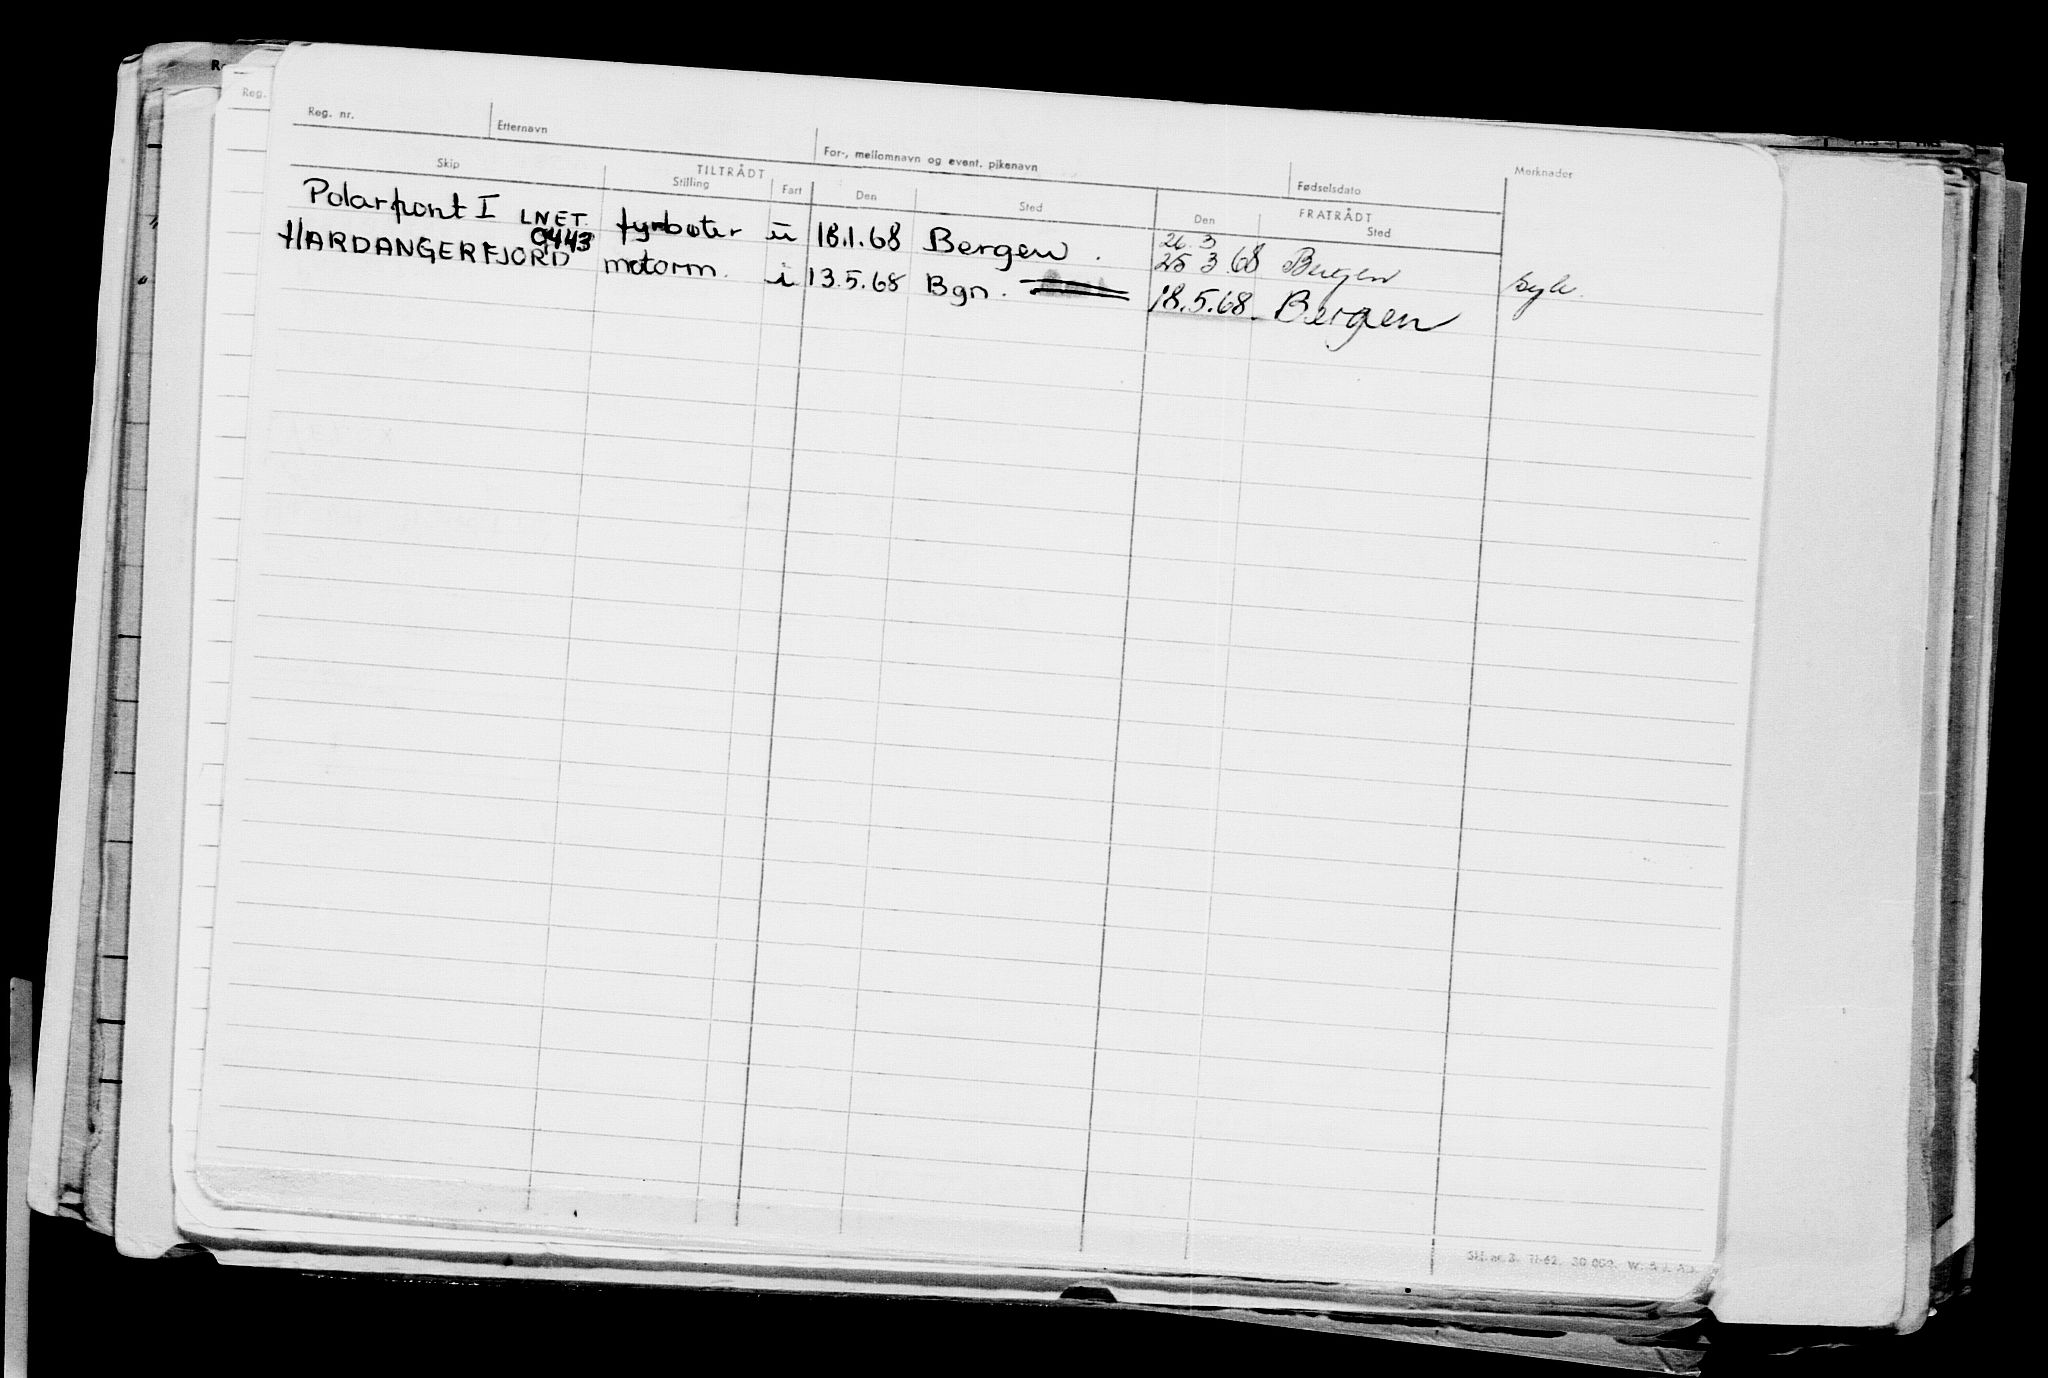 Reg. nr. Etternavn For-, mellomnavn og event. pikenavn Fødselsdato Merknader
Skip TILTRÅDT FRATRÅDT
Stilling Fart Den Sted Den Sted
Polarpont I LNET fyrbøter u 18.1.68 Bergen . 26.3 25 3.68 Bergen syk.
HARDANGERFJORD 9443 motorm. i 13.5.68 Bgn. 18.5.68. Bergen
Reg.